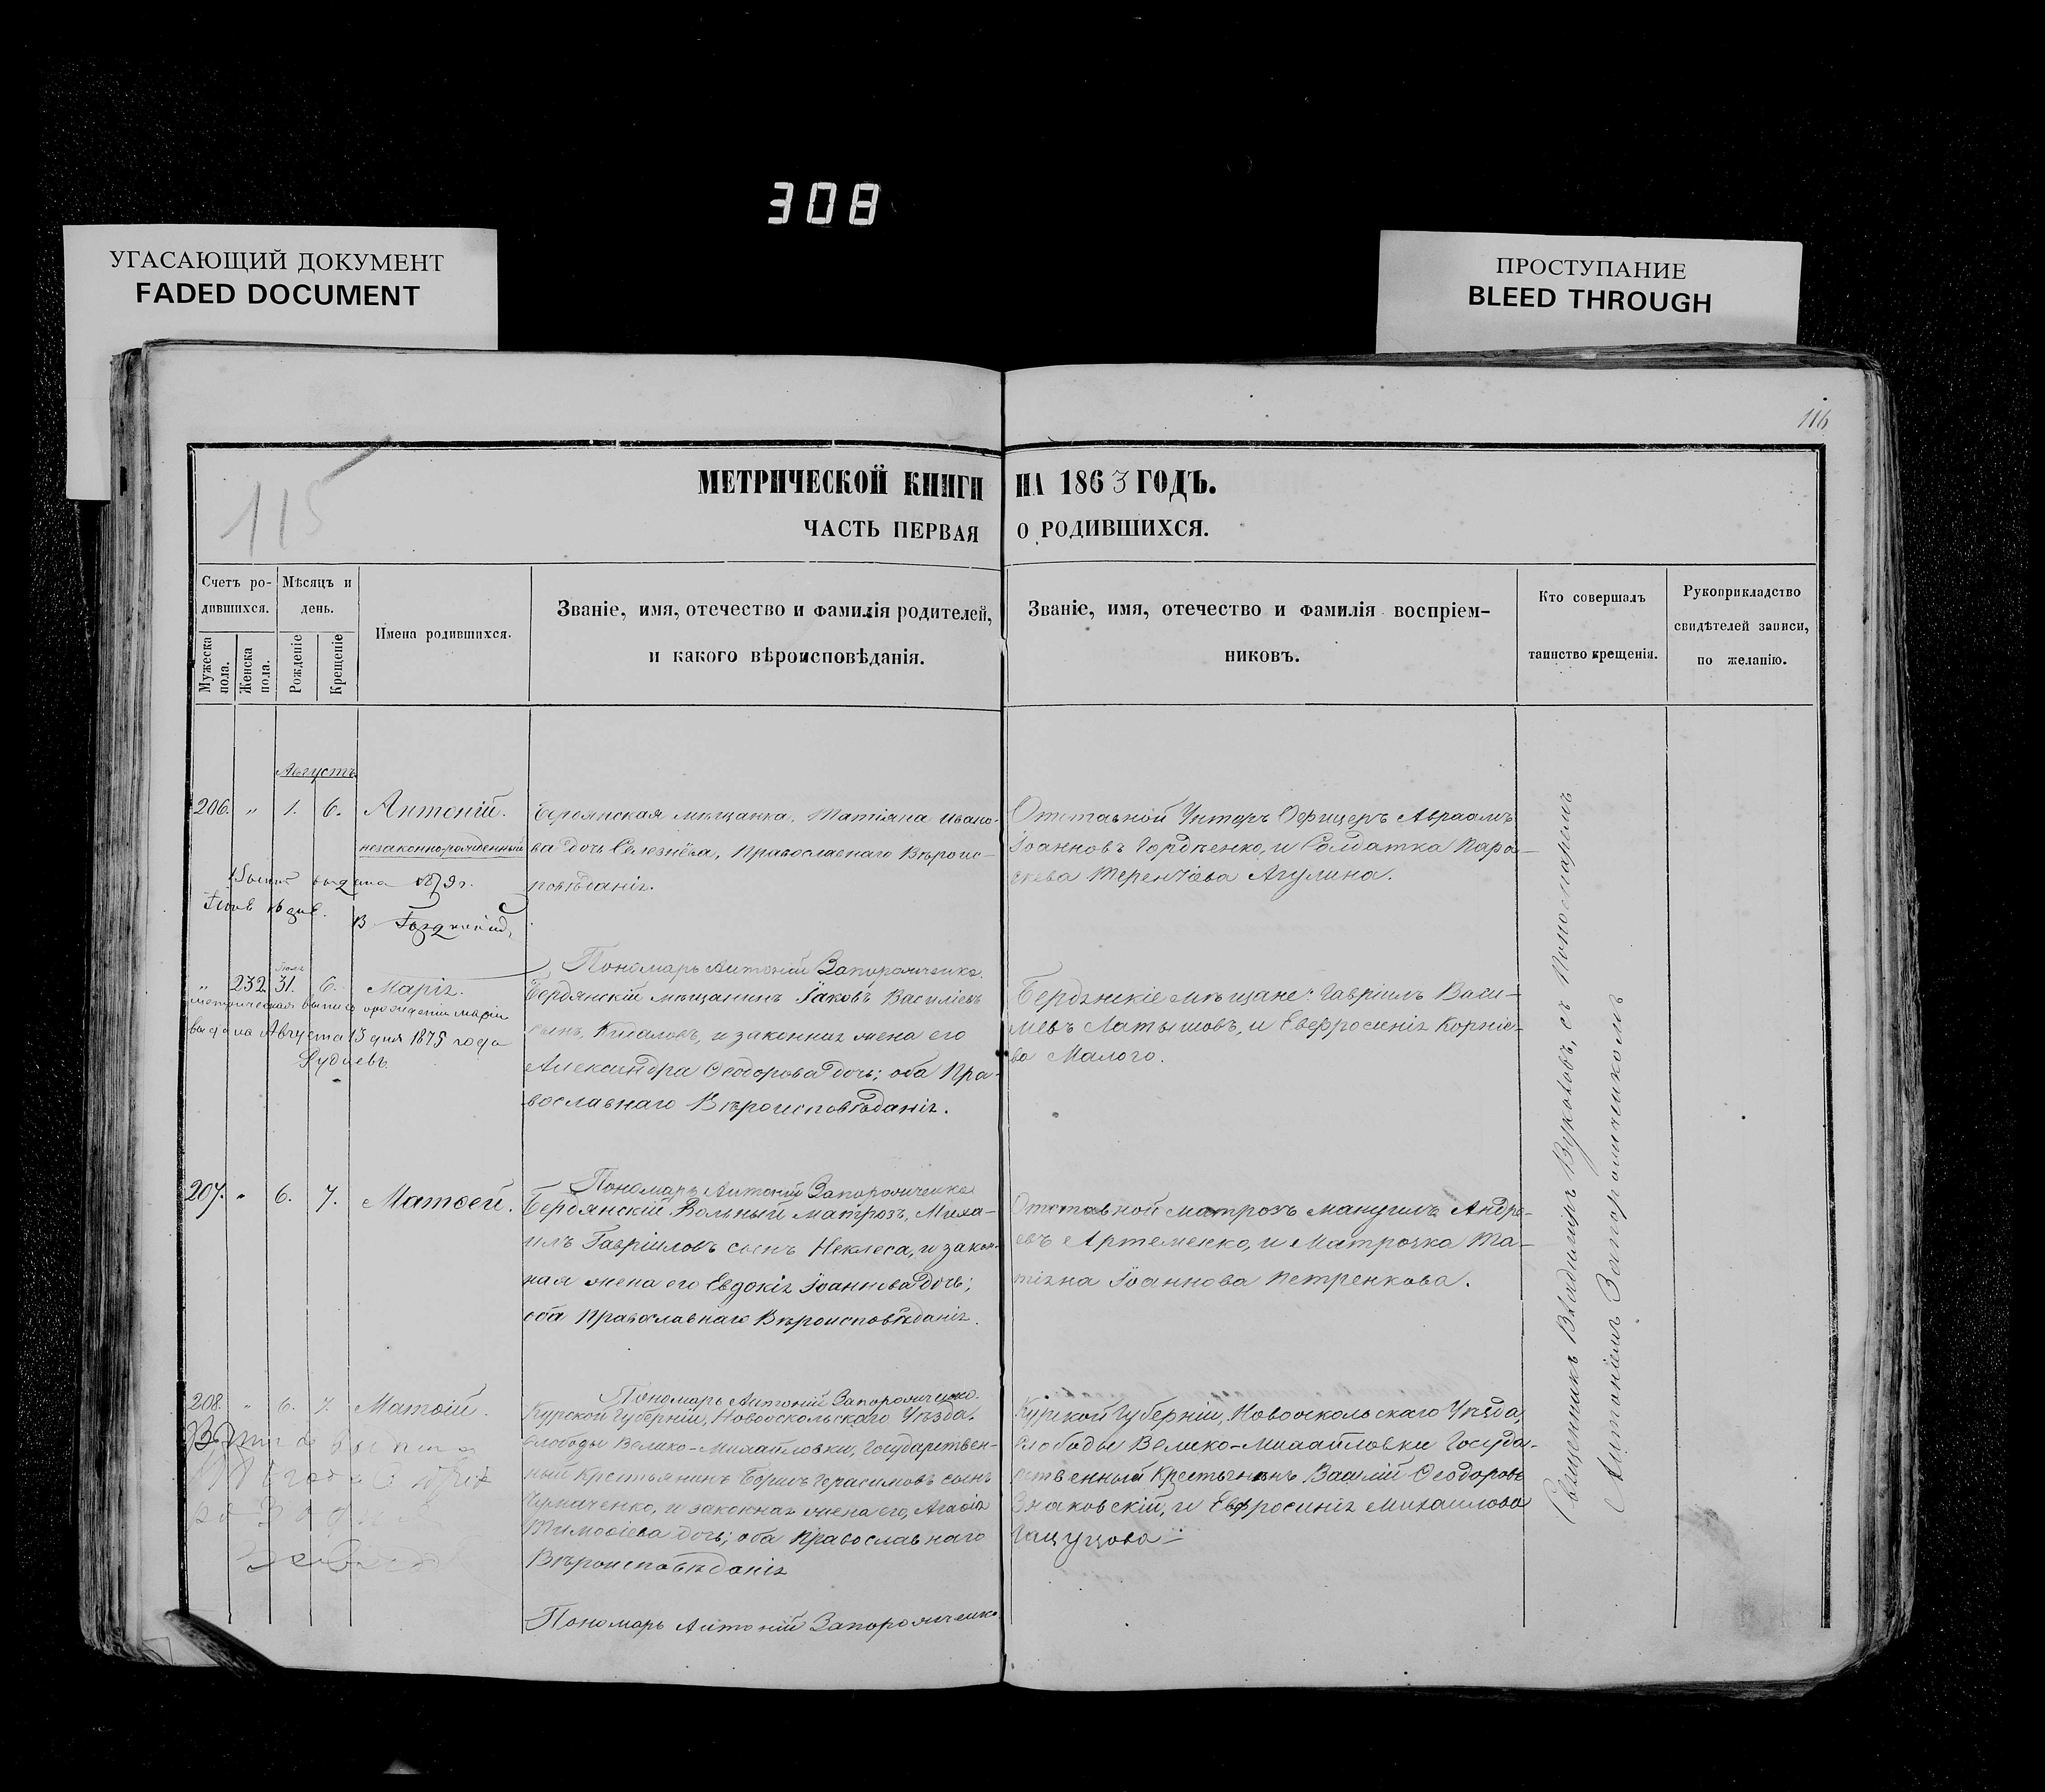 308
УГАСАЮЩИЙ ДОКУМЕНТ
FADED DOCUMENT
ПРОСТУПАНИЕ
BLEED THROUGH
116
115
МЕТРИЧЕСКОЙ КНИГИ НА 1863 ГОДЪ.
ЧАСТЬ ПЕРВАЯ О РОДИВШИХСЯ.
Счетъ ро-
дившихся.
Мужеска
пола.
Женска
пола.
Мѣсяцъ и
день.
Рожденіе
Крещеніе
Имена родившихся.
Званіе, имя, отечество и фамилія родителей,
и какого вѣроисповѣданія.
Званіе, имя, отечество и фамилія воспріем-
никовъ.
Кто совершалъ
таинство крещенія.
Рукоприкладство
свидѣтелей записи,
по желанію.
Августъ
206. „ 1. 6. Антоній.
незаконнорожденный
Бердянская мѣщанка, Татіана Ивано-
ва дочь Селезнёва, Православнаго Вѣроис-
повѣданія.
Отставной Унтеръ Офицеръ Авраамъ
Іоанновъ Гордѣенко, и Солдатка Пара-
скева Терентіева Агулина.
Пономарь Антоній Запорожченко.
„ 232. 31. 6. Марія.
Метрическая выпись о рожденіи Маріи
выдана Августа 13 дня 1875 года
Бердянскій мѣщанинъ Іаковъ Василіевъ
сынъ, Кидаловъ, и законная жена его
Александра Ѳеодорова дочь; оба Пра-
вославнаго Вѣроисповѣданія.
Бердянскіе мѣщане: Гавріилъ Васи-
ліевъ Латышовъ, и Евфросинія Корніе-
ва Малого.
Пономарь Антоній Запорожченко
207. „ 6. 7. Матѳей.
Бердянскій Вольный матрозъ, Миха-
илъ Гавріиловъ сынъ Неклеса, и закон-
ная жена его Евдокія Іоаннова дочь;
оба Православнаго Вѣроисповѣданія.
Отставной матрозъ Мануилъ Андре-
евъ Артеменко, и Матрозка Та-
тіана Іоаннова Петренкова.
Пономарь Антоній Запорожченко.
208. „ 6. 7. Матѳій.
Курской Губерніи, Новооскольскаго Уѣзда,
слободы Велико-Михайловки, Государствен-
ный Крестьянинъ Борисъ Герасимовъ сынъ
и законная жена его, Агаѳія
Тимоѳіева дочь; оба Православнаго
Вѣроисповѣданія
Курской Губерніи, Новооскольскаго Уѣзда,
слободы Велико-Михайловки Госуда-
рственный Крестьянинъ Василій Ѳеодоровъ
Знаковскій, и Евфросинія Михаилова
Пономарь Антоній Запорожченко
Священникъ Владиміръ Вуколовъ, съ Пономаремъ
Антоніемъ Запорожченкомъ